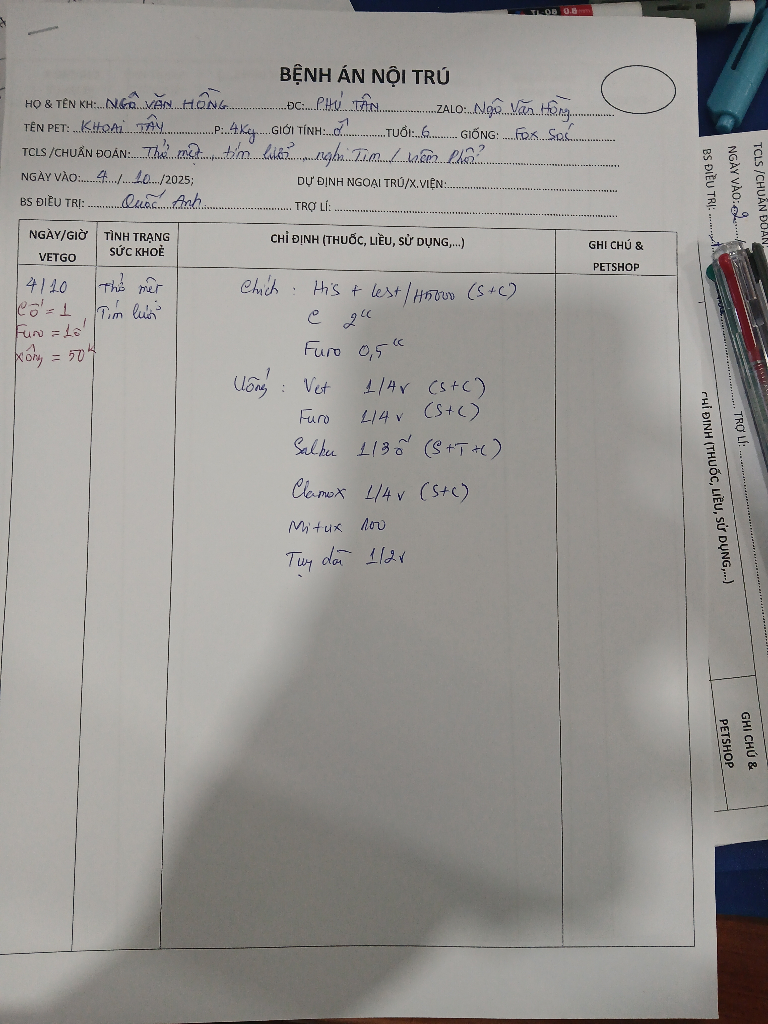 TL-08 0.8
BỆNH ÁN NỘI TRÚ
HỌ & TÊN KH: NGÔ VĂN HỒNG ĐC: PHÚ TÂN ZALO: Ngô Văn Hồng
TÊN PET: KHOAI TÂY P: 4Kg GIỚI TÍNH: ♂ TUỔI: 6 GIỐNG: Fox Sóc
TCLS /CHUẨN ĐOÁN: Thở mệt, tím lưỡi, nghi Tim / viêm Phổi
NGÀY VÀO: 4 / 10 /2025; DỰ ĐỊNH NGOẠI TRÚ/X.VIỆN:
BS ĐIỀU TRỊ: Quốc Anh TRỢ LÍ:
NGÀY/GIỜ VETGO TÌNH TRẠNG SỨC KHOẺ CHỈ ĐỊNH (THUỐC, LIỀU, SỬ DỤNG,...) GHI CHÚ & PETSHOP
4/10 Thở mệt Chích: His + Lest/H5000 (S+C)
Cố = 1 Tím lưỡi C 2cc
Furo = 1ố Furo 0,5cc
Xông = 50k
Uống: Vet 1/4v (S+C)
Furo 1/4v (S+C)
Salbu 1/3ố (S+T+C)
Clamox 1/4v (S+C)
Mitux 100
Tuy dãi 1/2v
TCLS /CHUẨN ĐOÁN:
NGÀY VÀO:
BS ĐIỀU TRỊ:
TRỢ LÍ:
CHỈ ĐỊNH (THUỐC, LIỀU, SỬ DỤNG,...)
GHI CHÚ &
PETSHOP